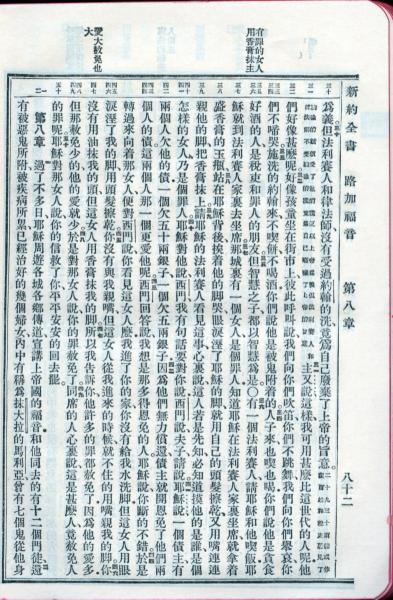 新約全書 路加福音 第八章 八十二
有罪的女人
用香膏抹主
愛大赦免也
大
爲義但法利賽人和律法師沒有受過約翰的洗竟爲自己廢棄了上帝的旨意
主又說這樣我可用甚麽比這世代的人呢他
們好像甚麽呢好像孩童坐在街市上彼此呼叫說我們向你們吹笛你們不跳舞我們向你們舉哀你
們不啼哭施洗的約翰來不喫餅不喝酒你們說他是被鬼附着的人子來也喫也喝你們說他是貪食
好酒的人是稅吏和罪人的朋友但智慧之子都以智慧爲是○有一個法利賽人請耶穌和他喫飯耶
穌就到法利賽人家裏去坐席那城裏有一個女人是個罪人知道耶穌在法利賽人家裏坐席就拿着
盛香膏的玉瓶站在耶穌背後挨着他的脚哭眼淚溼了耶穌的脚就用自己的頭髮擦乾又用嘴連連
親他的脚把香膏抹上請耶穌的法利賽人看見這事心裏說這人若是先知必知道摸他的是誰是個
怎樣的女人乃是個罪人耶穌對他說西門我有句話要對你說西門說夫子請說耶穌說一個債主有
兩個人欠他的債一個欠五十兩銀子一個欠五兩銀子因爲他們無力償還債主就開恩免了他們兩
個人的債這兩個人那一個更愛他呢西門回答說我想是那多得恩免的人耶穌說你斷的不錯於是
轉過來向着那女人便對西門說你看見這女人麽我進了你的家你沒有給我水洗脚但這女人用眼
淚溼了我的脚用頭髮擦乾你沒有與我親嘴但這女人從我進來的時候就不住的用嘴親我的脚你
沒有用油抹我的頭但這女人用香膏抹我的脚所以我告訴你他許多的罪都赦免了因爲他的愛多
但那赦免少的他的愛就少於是對那女人說你的罪赦免了同席的人心裏說這是甚麽人竟赦免人
的罪呢耶穌對那女人說你的信救了你平平安安的回去罷
第八章 過了不多日耶穌周遊各城各鄉傳道宣講上帝國的福音和他同去的有十二個門徒還
有被惡鬼所附被疾病所累已經治好的幾個婦女內中有稱爲抹大拉的馬利亞曾有七個鬼從他身